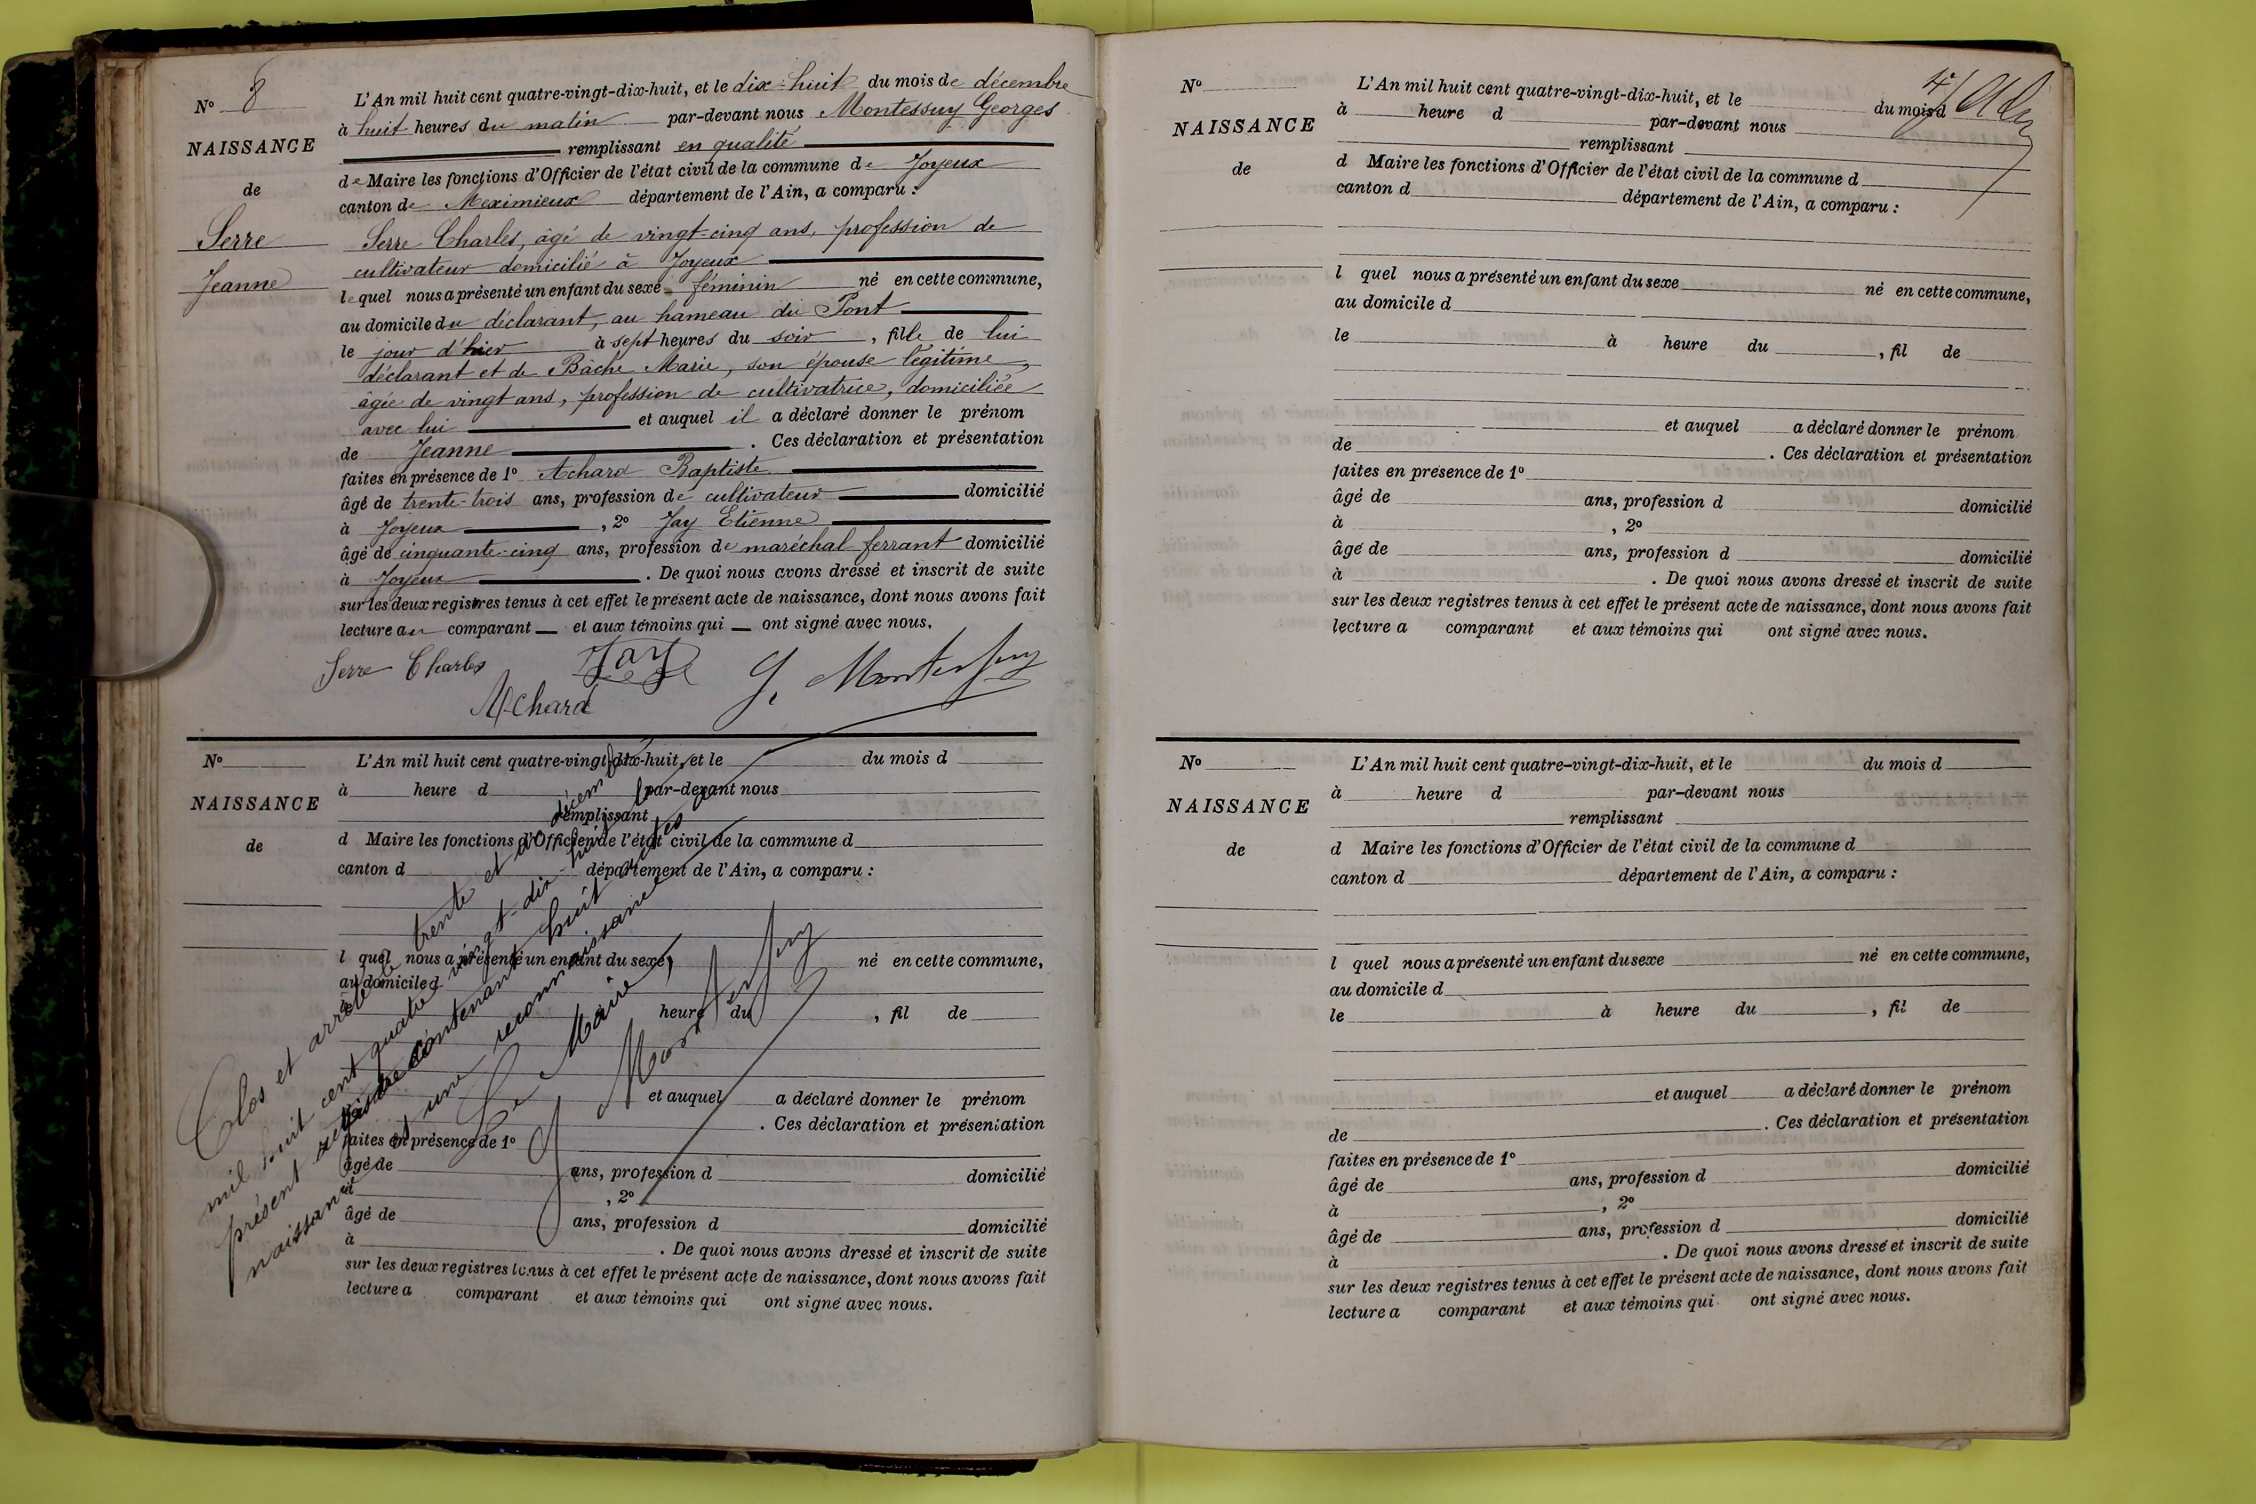 N° 8
NAISSANCE
de
Serre
Jeanne
L'An mil huit cent quatre-vingt-dix-huit, et le dix-huit du mois de décembre
à huit heures du matin par-devant nous Montessuy Georges
remplissant en qualité
de Maire les fonctions d'Officier de l'état civil de la commune de Joyeux
canton de Meximieux département de l'Ain, a comparu :
Serre Charles, âgé de vingt-cinq ans, profession de
cultivateur domicilié à Joyeux
lequel nous a présenté un enfant du sexe féminin né en cette commune,
au domicile du déclarant, au hameau du Pont
le jour d'hier à sept heures du soir, fille de lui
déclarant et de Bâche Marie, son épouse légitime,
âgée de vingt ans, profession de cultivatrice, domiciliée
avec lui et auquel il a déclaré donner le prénom
de Jeanne . Ces déclaration et présentation
faites en présence de 1° Achard Baptiste
âgé de trente-trois ans, profession de cultivateur domicilié
à Joyeux , 2° Jay Etienne
âgé de cinquante-cinq ans, profession de maréchal ferrant domicilié
à Joyeux . De quoi nous avons dressé et inscrit de suite
sur les deux registres tenus à cet effet le présent acte de naissance, dont nous avons fait
lecture au comparant et aux témoins qui ont signé avec nous.
Serre Charles Jay G. Montessuy
Achard
N°
NAISSANCE
de
L'An mil huit cent quatre-vingt-dix-huit, et le du mois d
à heure d par-devant nous
remplissant
d Maire les fonctions d'Officier de l'état civil de la commune d
canton d département de l'Ain, a comparu :
l quel nous a présenté un enfant du sexe né en cette commune,
au domicile d
le à heure du , fil de
et auquel a déclaré donner le prénom
. Ces déclaration et présentation
faites en présence de 1°
âgé de ans, profession d domicilié
à , 2°
âgé de ans, profession d domicilié
à . De quoi nous avons dressé et inscrit de suite
sur les deux registres tenus à cet effet le présent acte de naissance, dont nous avons fait
lecture a comparant et aux témoins qui ont signé avec nous.
Clos et arrêté le trente et un décembre
mil huit cent quatre vingt-dix-huit le
présent registre contenant huit actes de
naissance et une reconnaissance
Le Maire,
G. Montessuy
N°
NAISSANCE
de
L'An mil huit cent quatre-vingt-dix-huit, et le du mois d
à heure d par-devant nous
remplissant
d Maire les fonctions d'Officier de l'état civil de la commune d
canton d département de l'Ain, a comparu :
l quel nous a présenté un enfant du sexe né en cette commune,
au domicile d
le à heure du , fil de
et auquel a déclaré donner le prénom
de . Ces déclaration et présentation
faites en présence de 1°
âgé de ans, profession d domicilié
à , 2°
âgé de ans, profession d domicilié
à . De quoi nous avons dressé et inscrit de suite
sur les deux registres tenus à cet effet le présent acte de naissance, dont nous avons fait
lecture a comparant et aux témoins qui ont signé avec nous.
N°
NAISSANCE
de
L'An mil huit cent quatre-vingt-dix-huit, et le du mois d
à heure d par-devant nous
remplissant
d Maire les fonctions d'Officier de l'état civil de la commune d
canton d département de l'Ain, a comparu :
l quel nous a présenté un enfant du sexe né en cette commune,
au domicile d
le à heure du , fil de
et auquel a déclaré donner le prénom
de . Ces déclaration et présentation
faites en présence de 1°
âgé de ans, profession d domicilié
à , 2°
âgé de ans, profession d domicilié
à . De quoi nous avons dressé et inscrit de suite
sur les deux registres tenus à cet effet le présent acte de naissance, dont nous avons fait
lecture a comparant et aux témoins qui ont signé avec nous.